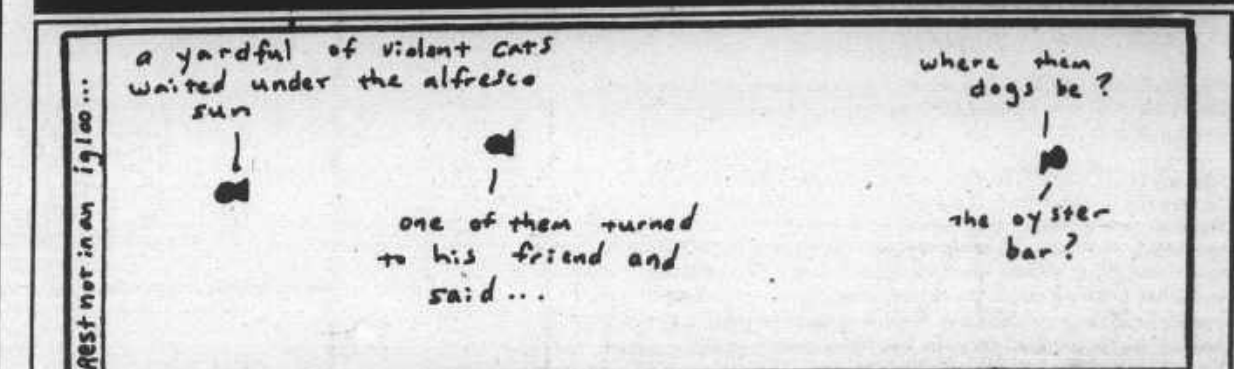 Rest not in an igloo...
a yardful of violent cats
waited under the alfresco
sun
one of them turned
to his friend and
said...
where them
dogs be?
the oyster
bar?